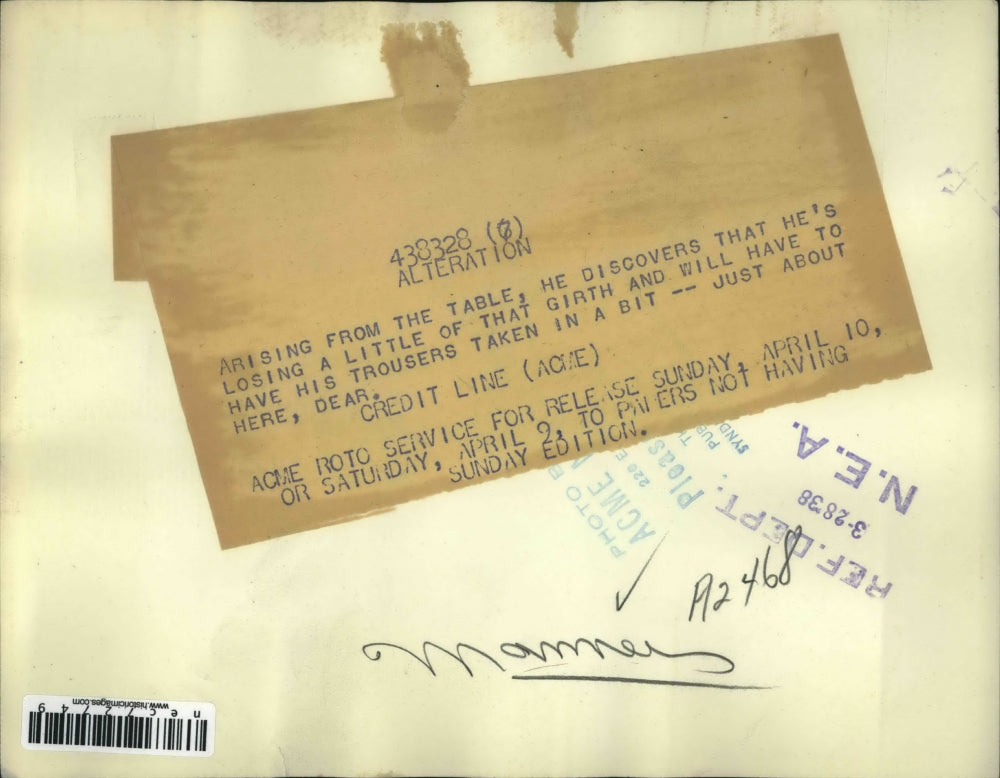 438328 (7)
ALTERATION
ARISING FROM THE TABLE, HE DISCOVERS THAT HE'S
LOSING A LITTLE OF THAT GIRTH AND WILL HAVE TO
HAVE HIS TROUSERS TAKEN IN A BIT -- JUST ABOUT
HERE, DEAR.
CREDIT LINE (ACME)
ACME ROTO SERVICE FOR RELEASE SUNDAY, APRIL 10,
OR SATURDAY, APRIL 2, TO PAPERS NOT HAVING
SUNDAY EDITION.
PHOTO B
ACME
220 E
Pleas
PUB
SYND
REF. DEPT.
3-28-38
N.E.A.
A2468
Manners
www.historicimages.com
nec72749